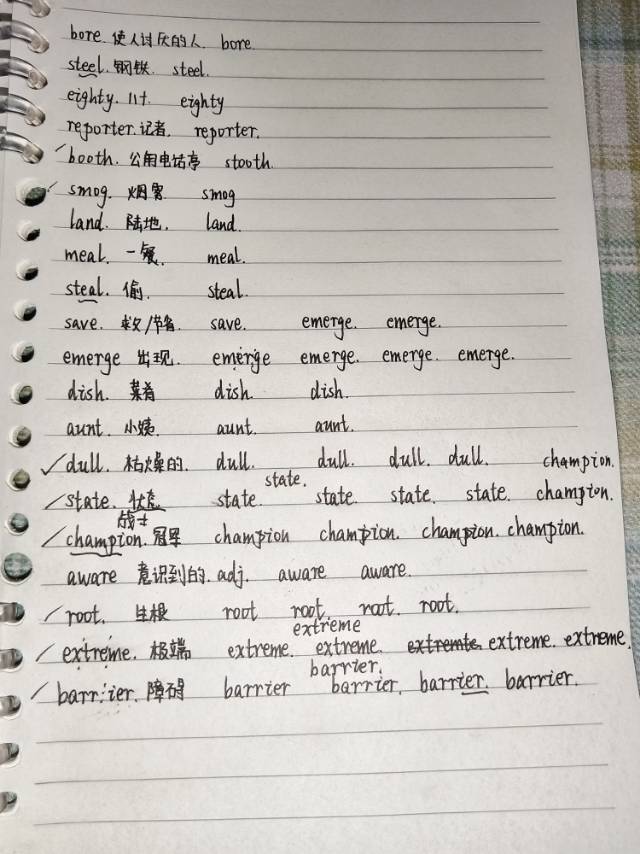 bore. 使人讨厌的人. bore.
steel. 钢铁. steel.
eighty. 八十. eighty
reporter. 记者. reporter.
✓booth. 公用电话亭 stooth.
✓smog. 烟雾 smog
land. 陆地. land.
meal. 一餐. meal.
steal. 偷. steal.
save. 救/节省. save. emerge. emerge.
emerge 出现. emerge emerge. emerge. emerge.
dish. 菜肴 dish. dish.
aunt. 小姨. aunt. aunt.
✓dull. 枯燥的. dull. dull. dull. dull. champion.
state.
✓state. 状态 state. state. state. state. champion.
战士
✓champion. 冠军 champion champion. champion. champion.
aware 意识到的. adj. aware aware.
✓root. 生根 root root root. root.
extreme
✓extreme. 极端 extreme. extreme. extreme. extreme.
barrier.
✓barrier. 障碍 barrier barrier. barrier. barrier.